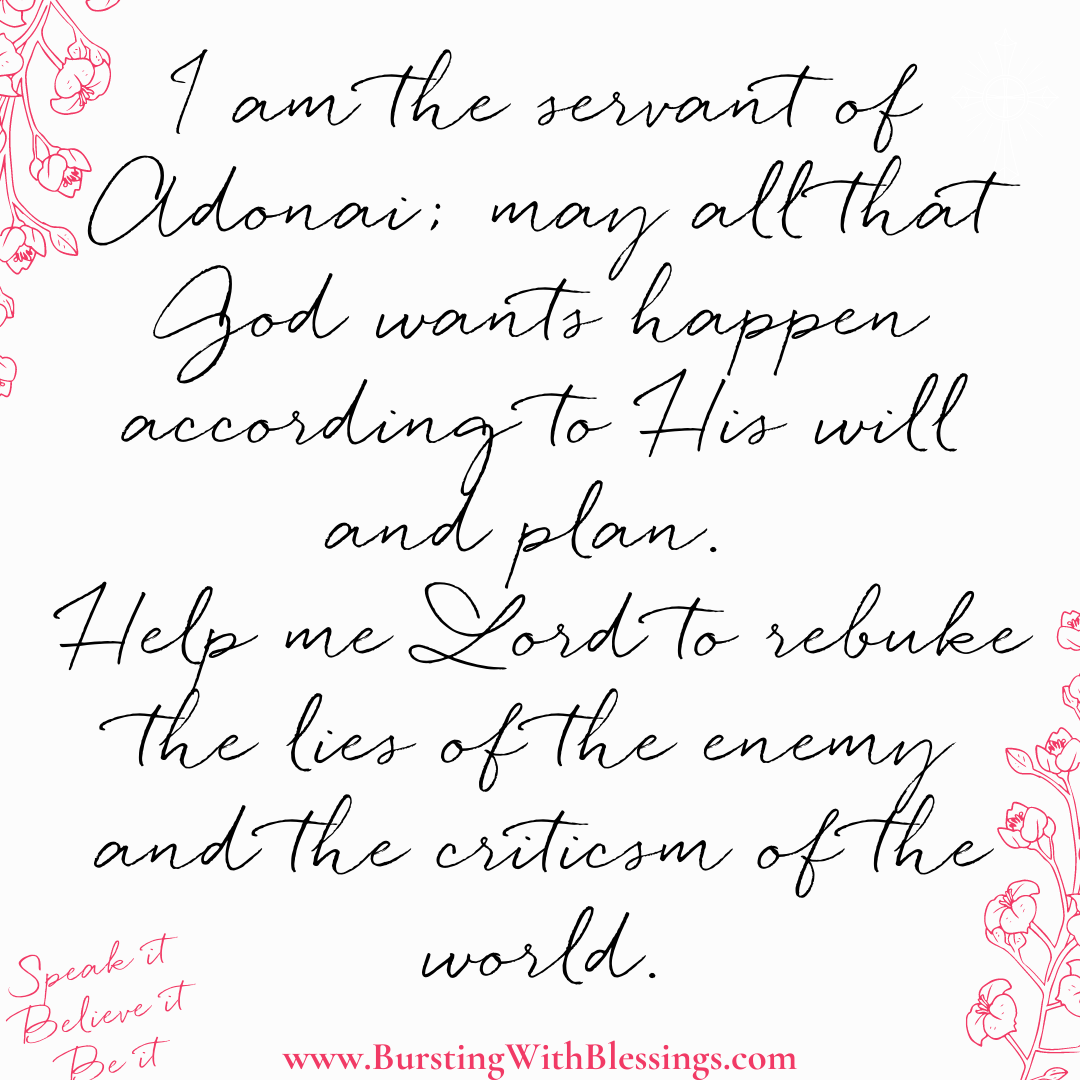 I am the servant of
Adonai; may all that
God wants happen
according to His will
and plan.
Help me Lord to rebuke
the lies of the enemy
and the criticsm of the
world.
Speak it
Believe it
Be it
www.BurstingWithBlessings.com